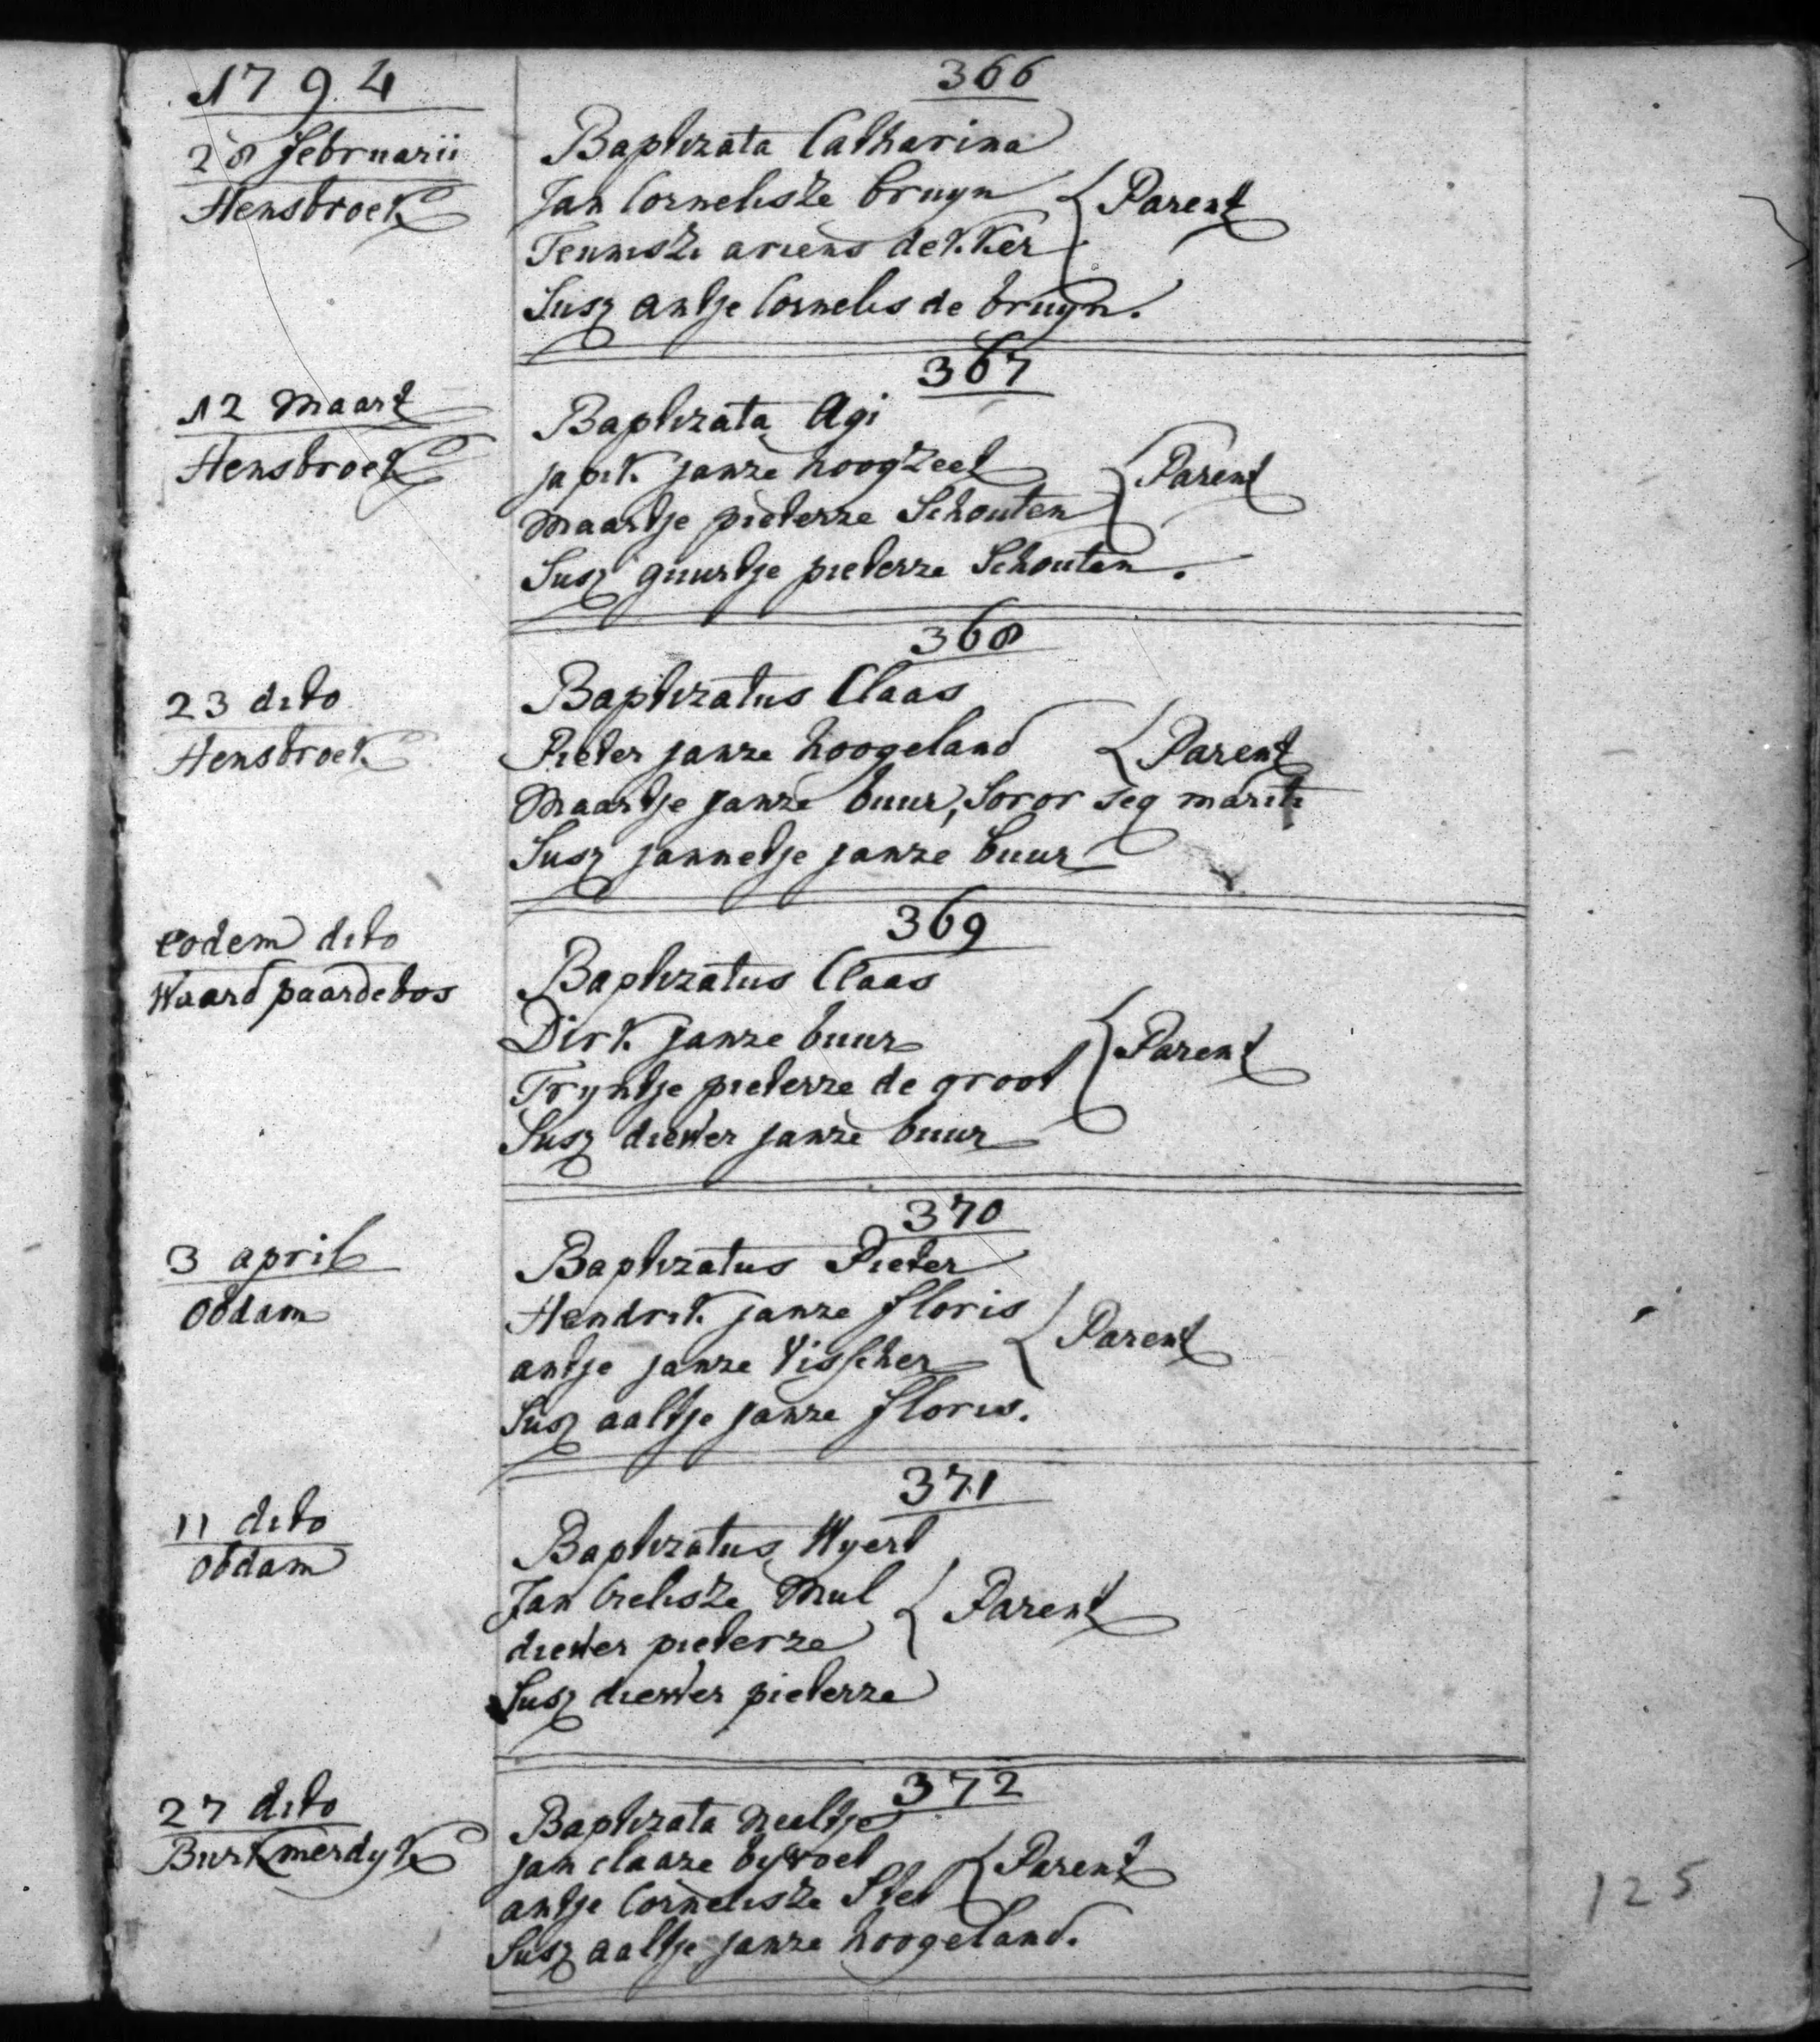 1794
366
28 februarii
Hensbroek
Baptizata Catharina
Jan Cornelisze bruyn
Parent
Teunisze ariens dekker
Susz antje Cornelis de bruyn.
367
12 Maart
Hensbroek
Baptizata Agi
japik janze hoogzeet
Parent
Maartje pieterze Schouten
Susz guurtje pieterze Schouten.
368
23 dito
Hensbroek
Baptizatus Claas
Pieter janze hoogeland
Parent
Maartje janze buur, Soror seq mariti
Susz jannetje janze buur
369
eodem dito
Waard paardebos
Baptizatus Claas
Dirk janze buur
Parent
Tryntje pieterze de groot
Susz diewer janze buur
370
3 april
Obdam
Baptizatus Pieter
Hendrik janze floris
Parent
antje janze Visscher
Susz aaltje janze floris.
371
11 dito
Obdam
Baptizatus Wyert
Jan Crelisze Mul
Parent
diewer pieterze
Susz diewer pieterze
372
27 dito
Burkmerdyk
Baptizata Neeltje
jan claaze byvoet
Parent
antje Cornelisze Stet
Susz aaltje janze hoogeland.
125